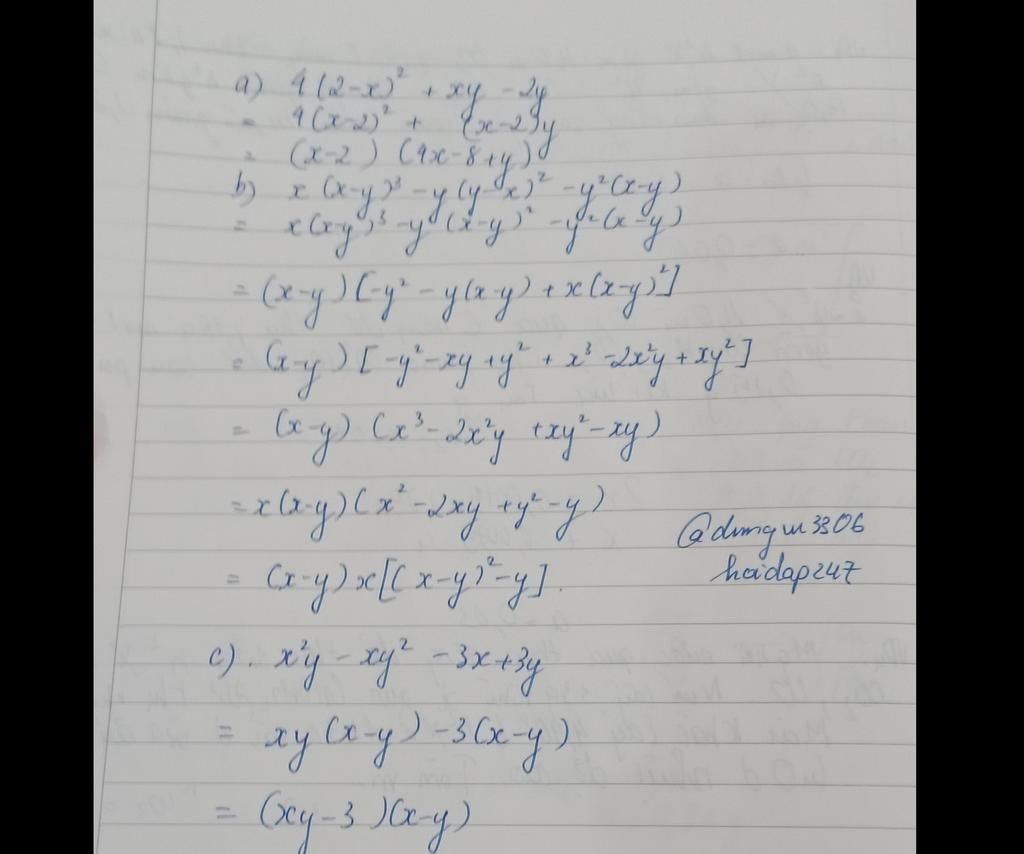 a) 4(2-x)² + xy - 2y
= 4(x-2)² + (x-2)y
= (x-2) (4x-8+y)
b) x(x-y)³ - y(y-x)² - y²(x-y)
= x(x-y)³ - y(x-y)² - y²(x-y)
= (x-y)[-y² - y(x-y) + x(x-y)²]
= (x-y) [-y² - xy + y² + x³ - 2x²y + xy²]
= (x-y) (x³ - 2x²y + xy² - xy)
= x(x-y)(x² - 2xy + y² - y)
@dungw3306
hoidap247
= (x-y)x[(x-y)² - y].
c). x²y - xy² - 3x + 3y
= xy(x-y) - 3(x-y)
= (xy-3)(x-y)